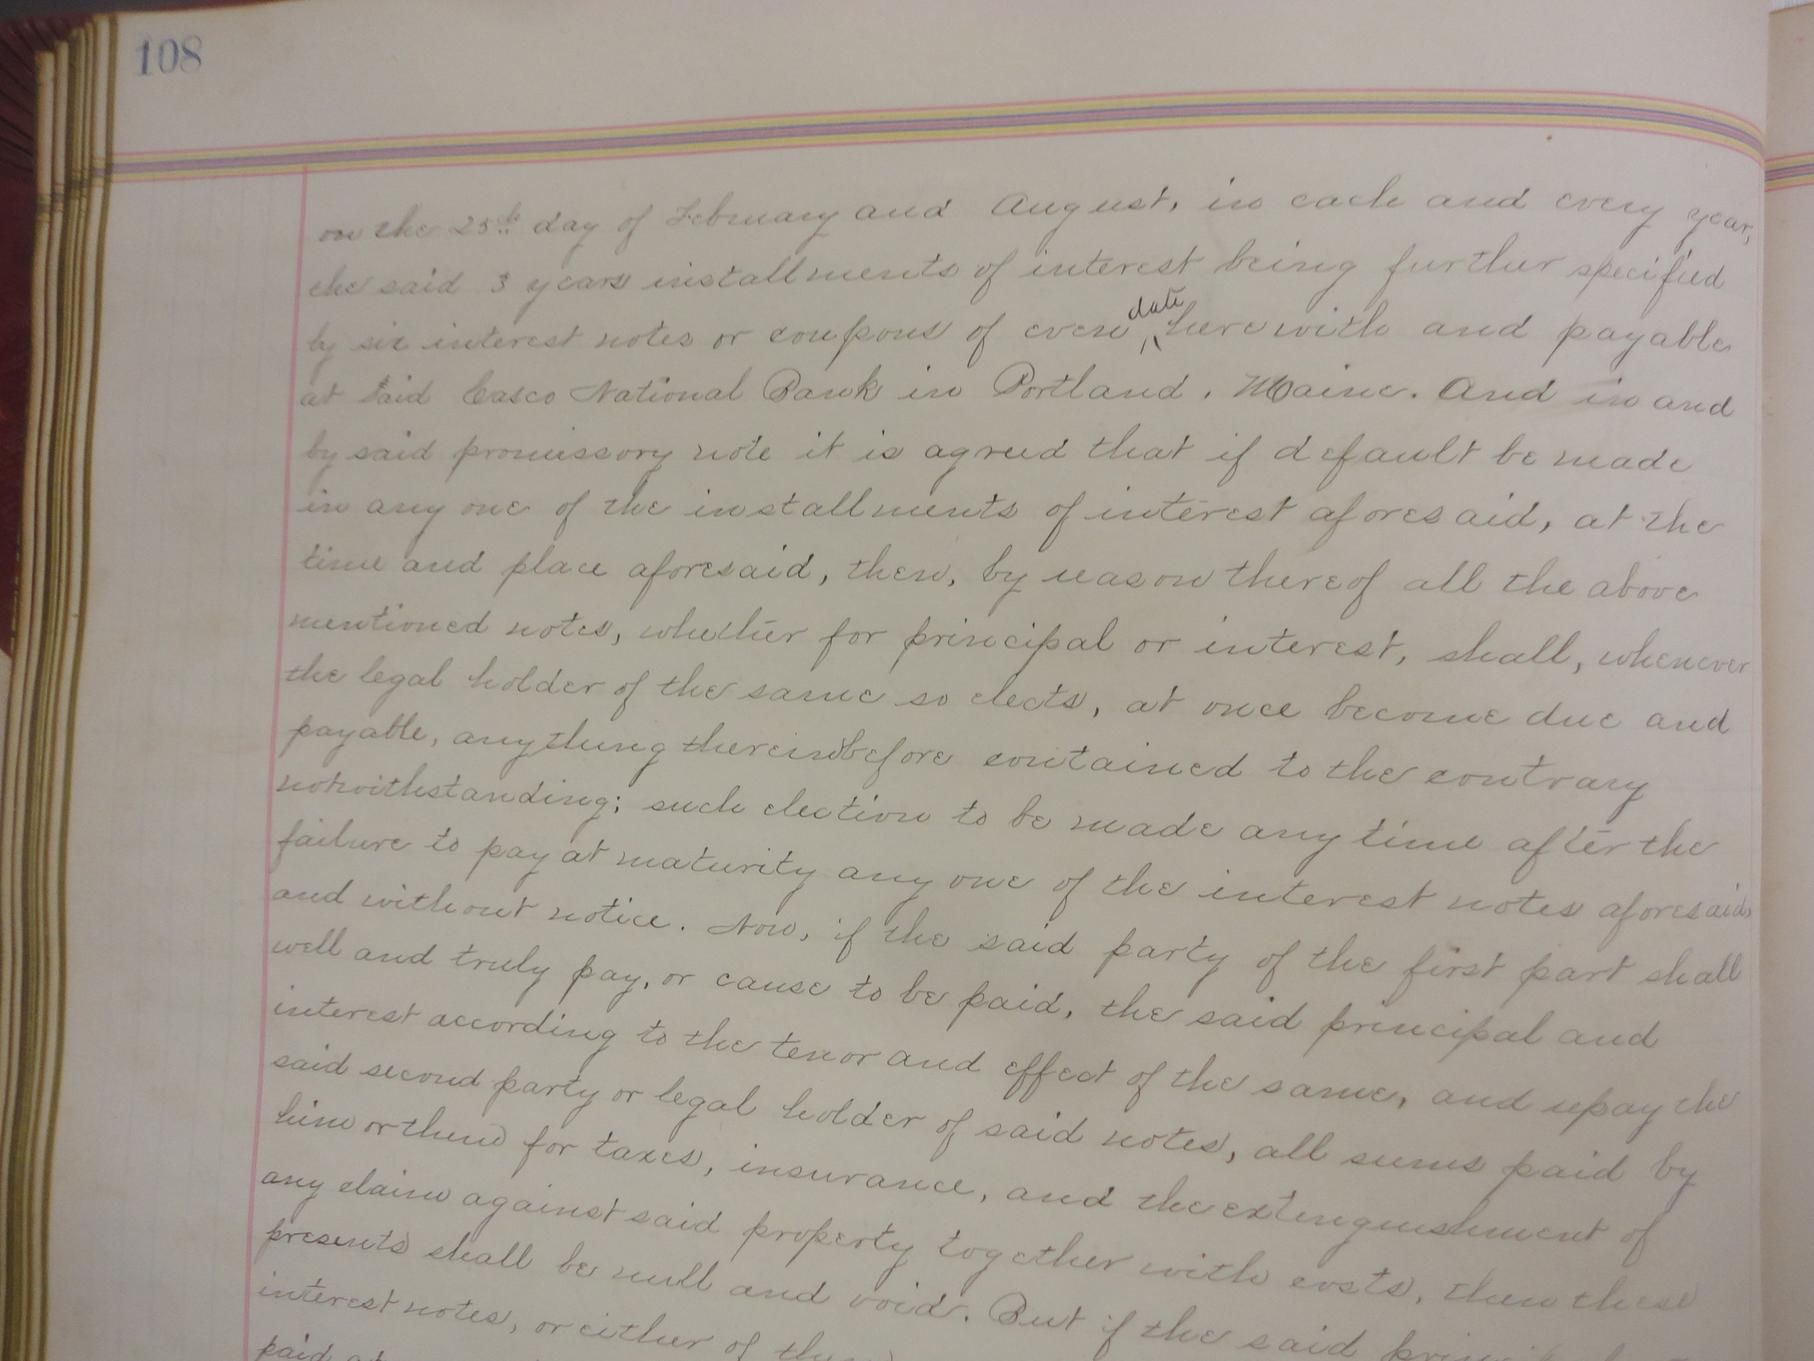 108
on the 25th day of February and August, in each and every year,
the said 3 years installments of interest being further specified
by six interest notes or coupons of even date herewith and payable
at said Casco National Bank in Portland, Maine. And in and
by said promissory note it is agreed that if default be made
in any one of the installments of interest aforesaid, at the
time and place aforesaid, then, by reason thereof all the above
mentioned notes, whether for principal or interest, shall, whenever
the legal holder of the same so elects, at once become due and
payable, anything thereinbefore contained to the contrary
notwithstanding; such election to be made any time after the
failure to pay at maturity any one of the interest notes aforesaid,
and without notice. Now, if the said party of the first part shall
well and truly pay, or cause to be paid, the said principal and
interest according to the tenor and effect of the same, and repay the
said second party or legal holder of said notes, all sums paid by
him or them for taxes, insurance, and the extinguishment of
any claim against said property together with costs, then these
presents shall be null and void. But if the said
interest notes, or either of
paid at